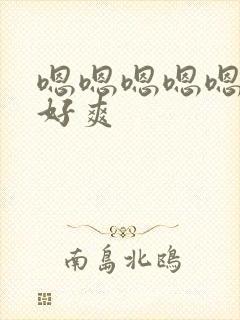 嗯嗯嗯嗯嗯
好爽
南岛北鸥